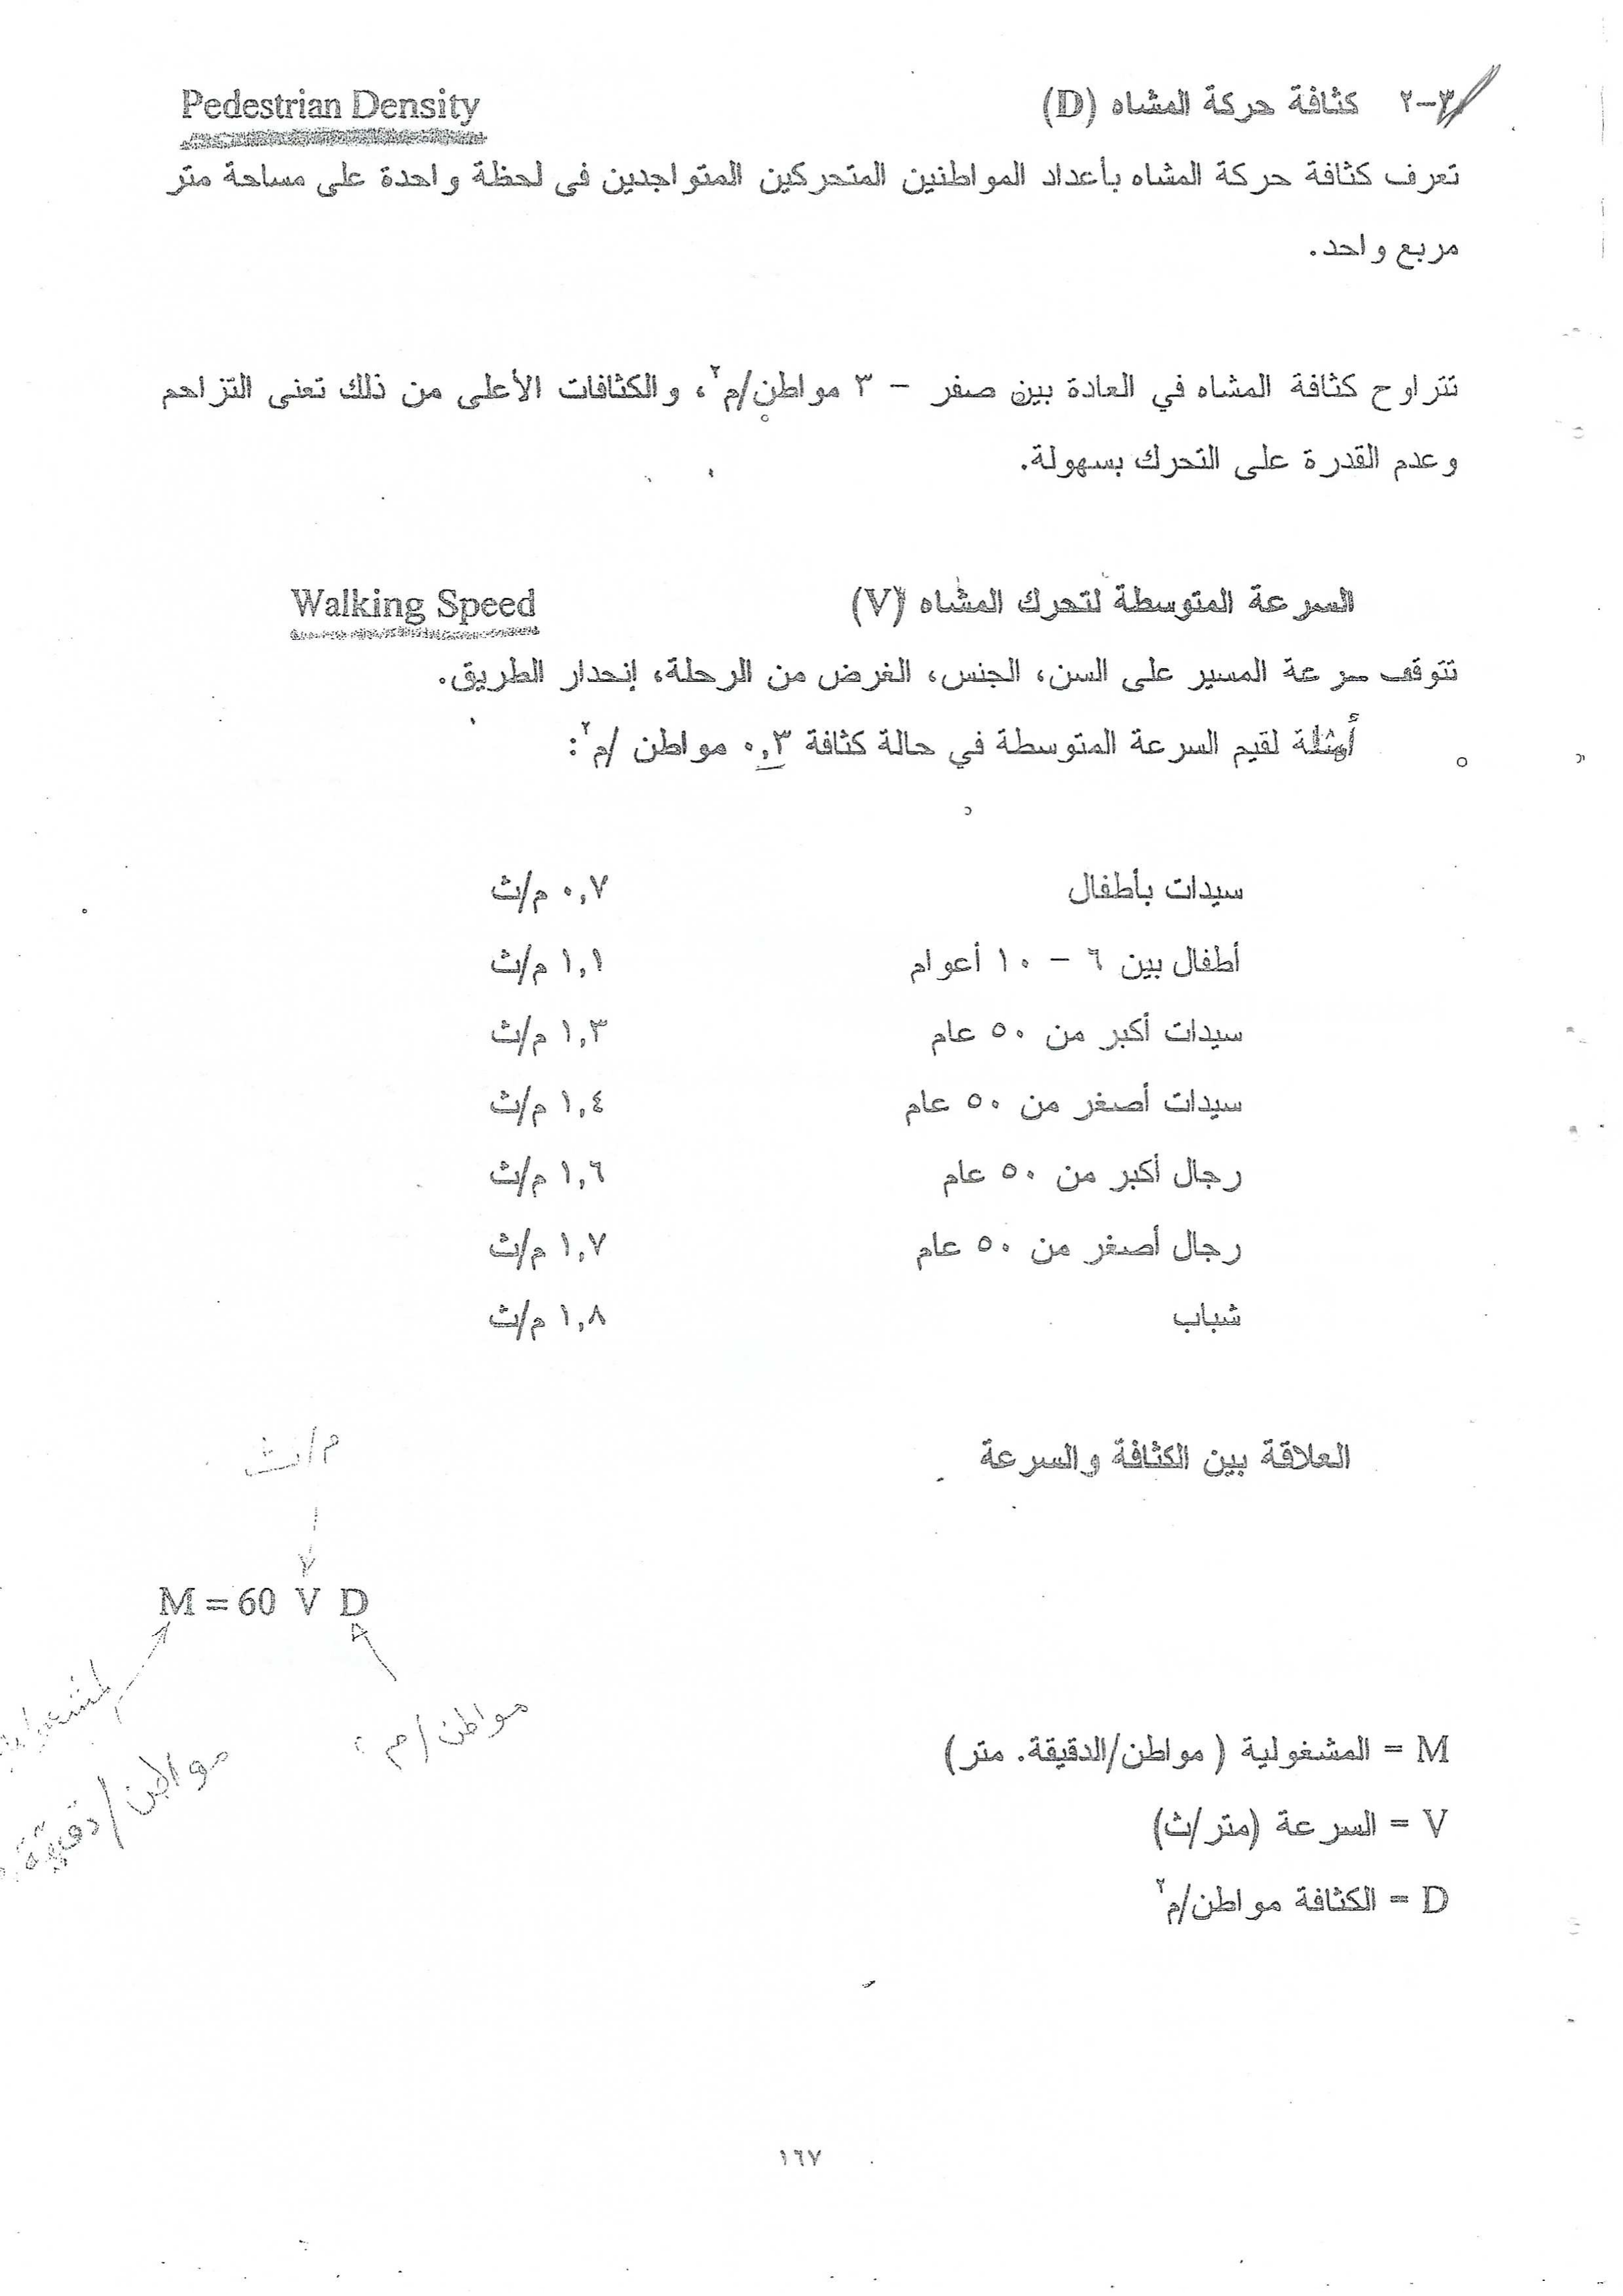 ٢-٣ كثافة حركة المشاه (D) Pedestrian Density
تعرف كثافة حركة المشاه بأعداد المواطنين المتحركين المتواجدين فى لحظة واحدة على مساحة متر
مربع واحد.
تتراوح كثافة المشاه في العادة بين صفر - ٣ مواطن/م٢، والكثافات الأعلى من ذلك تعنى التزاحم
وعدم القدرة على التحرك بسهولة.
السرعة المتوسطة لتحرك المشاه (V) Walking Speed
تتوقف سرعة المسير على السن، الجنس، الغرض من الرحلة، إنحدار الطريق.
أمثلة لقيم السرعة المتوسطة في حالة كثافة ٠,٣ مواطن /م٢:
سيدات بأطفال ٠,٧ م/ث
أطفال بين ٦ - ١٠ أعوام ١,١ م/ث
سيدات أكبر من ٥٠ عام ١,٣ م/ث
سيدات أصغر من ٥٠ عام ١,٤ م/ث
رجال أكبر من ٥٠ عام ١,٦ م/ث
رجال أصغر من ٥٠ عام ١,٧ م/ث
شباب ١,٨ م/ث
العلاقة بين الكثافة والسرعة
م/ث
M = 60 V D
مواطن/م٢
مواطن/دقيقة
M = المشغولية ( مواطن/الدقيقة. متر)
V = السرعة (متر/ث)
D = الكثافة مواطن/م٢
١٦٧